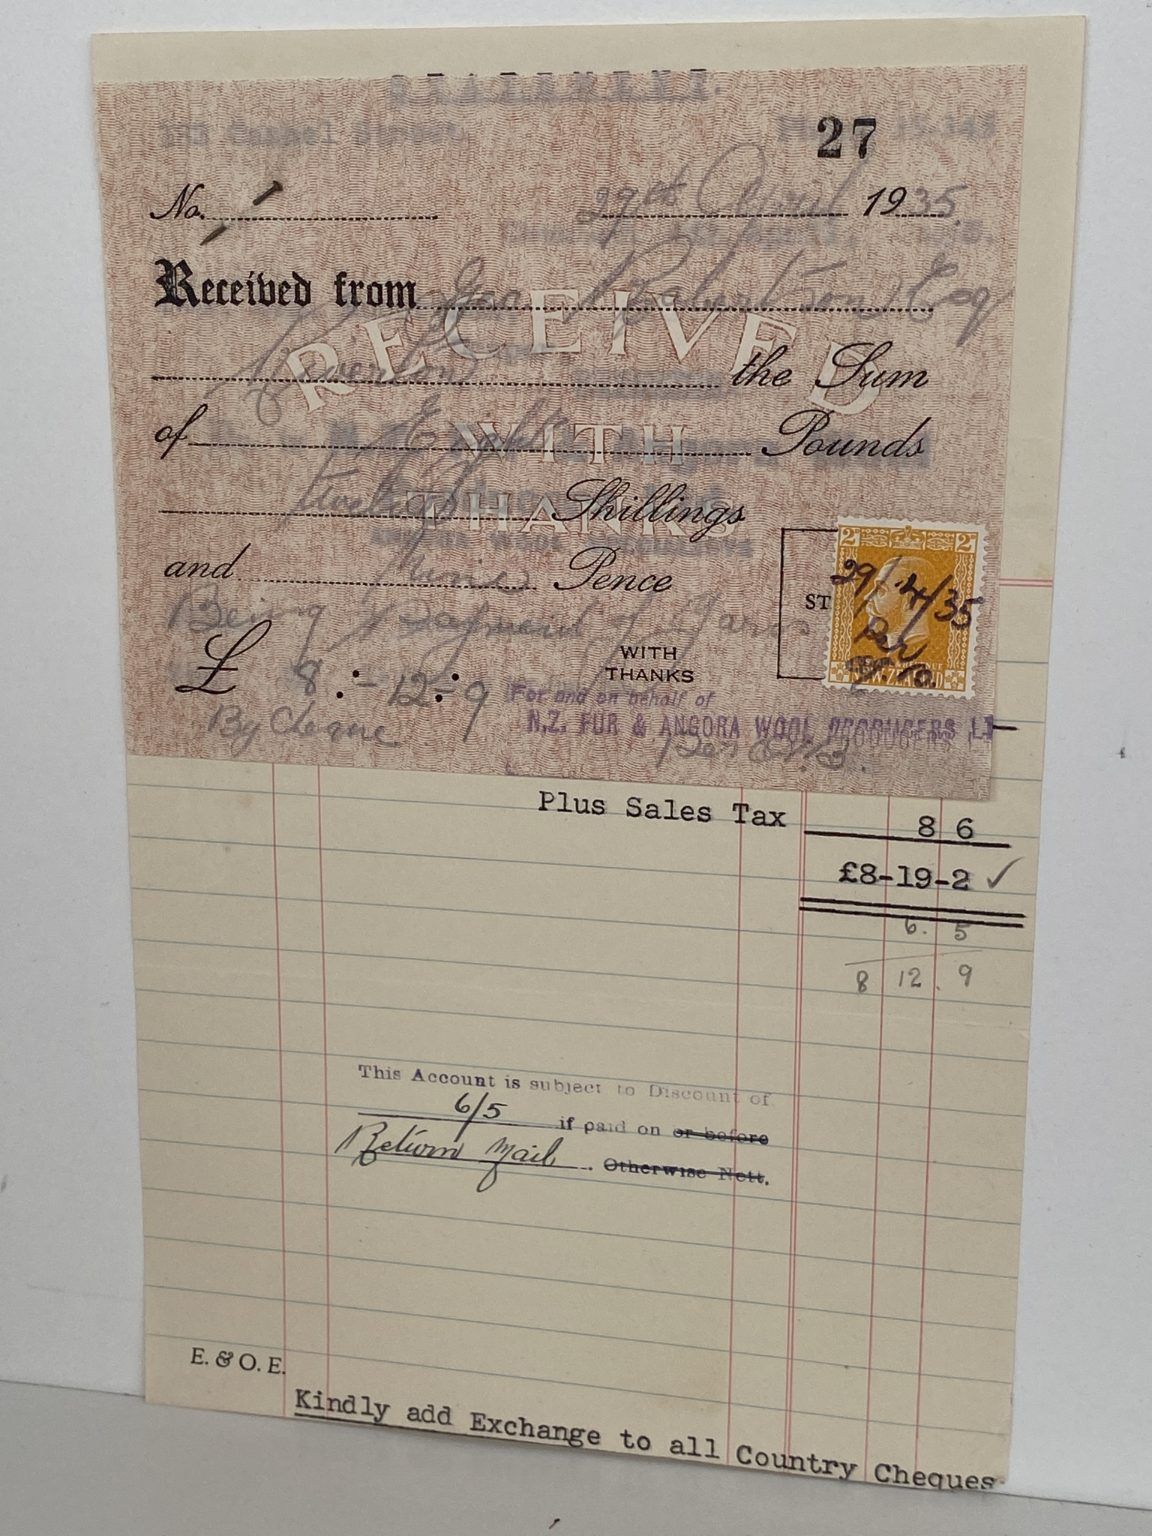 STATEMENT.
27
No. 1
29th April 1935.
Received from Geo. Robertson Esq
Riverton the Sum
of Eight Pounds
twelve Shillings
and Nine Pence
Being Payment of Yarns
WITH
THANKS
£ 8 :- 12 :- 9
By Cheque
RECEIVED
WITH
THANKS
2D 2D
ST
29/4/35
Per
For and on behalf of
N.Z. FUR & ANGORA WOOL PRODUCERS L
Per
Plus Sales Tax 8 6
£8-19-2 ✓
6. 5
8 12. 9
This Account is subject to Discount of
6/5 if paid on or before
Return Mail. Otherwise Nett.
E. & O. E.
Kindly add Exchange to all Country Cheques